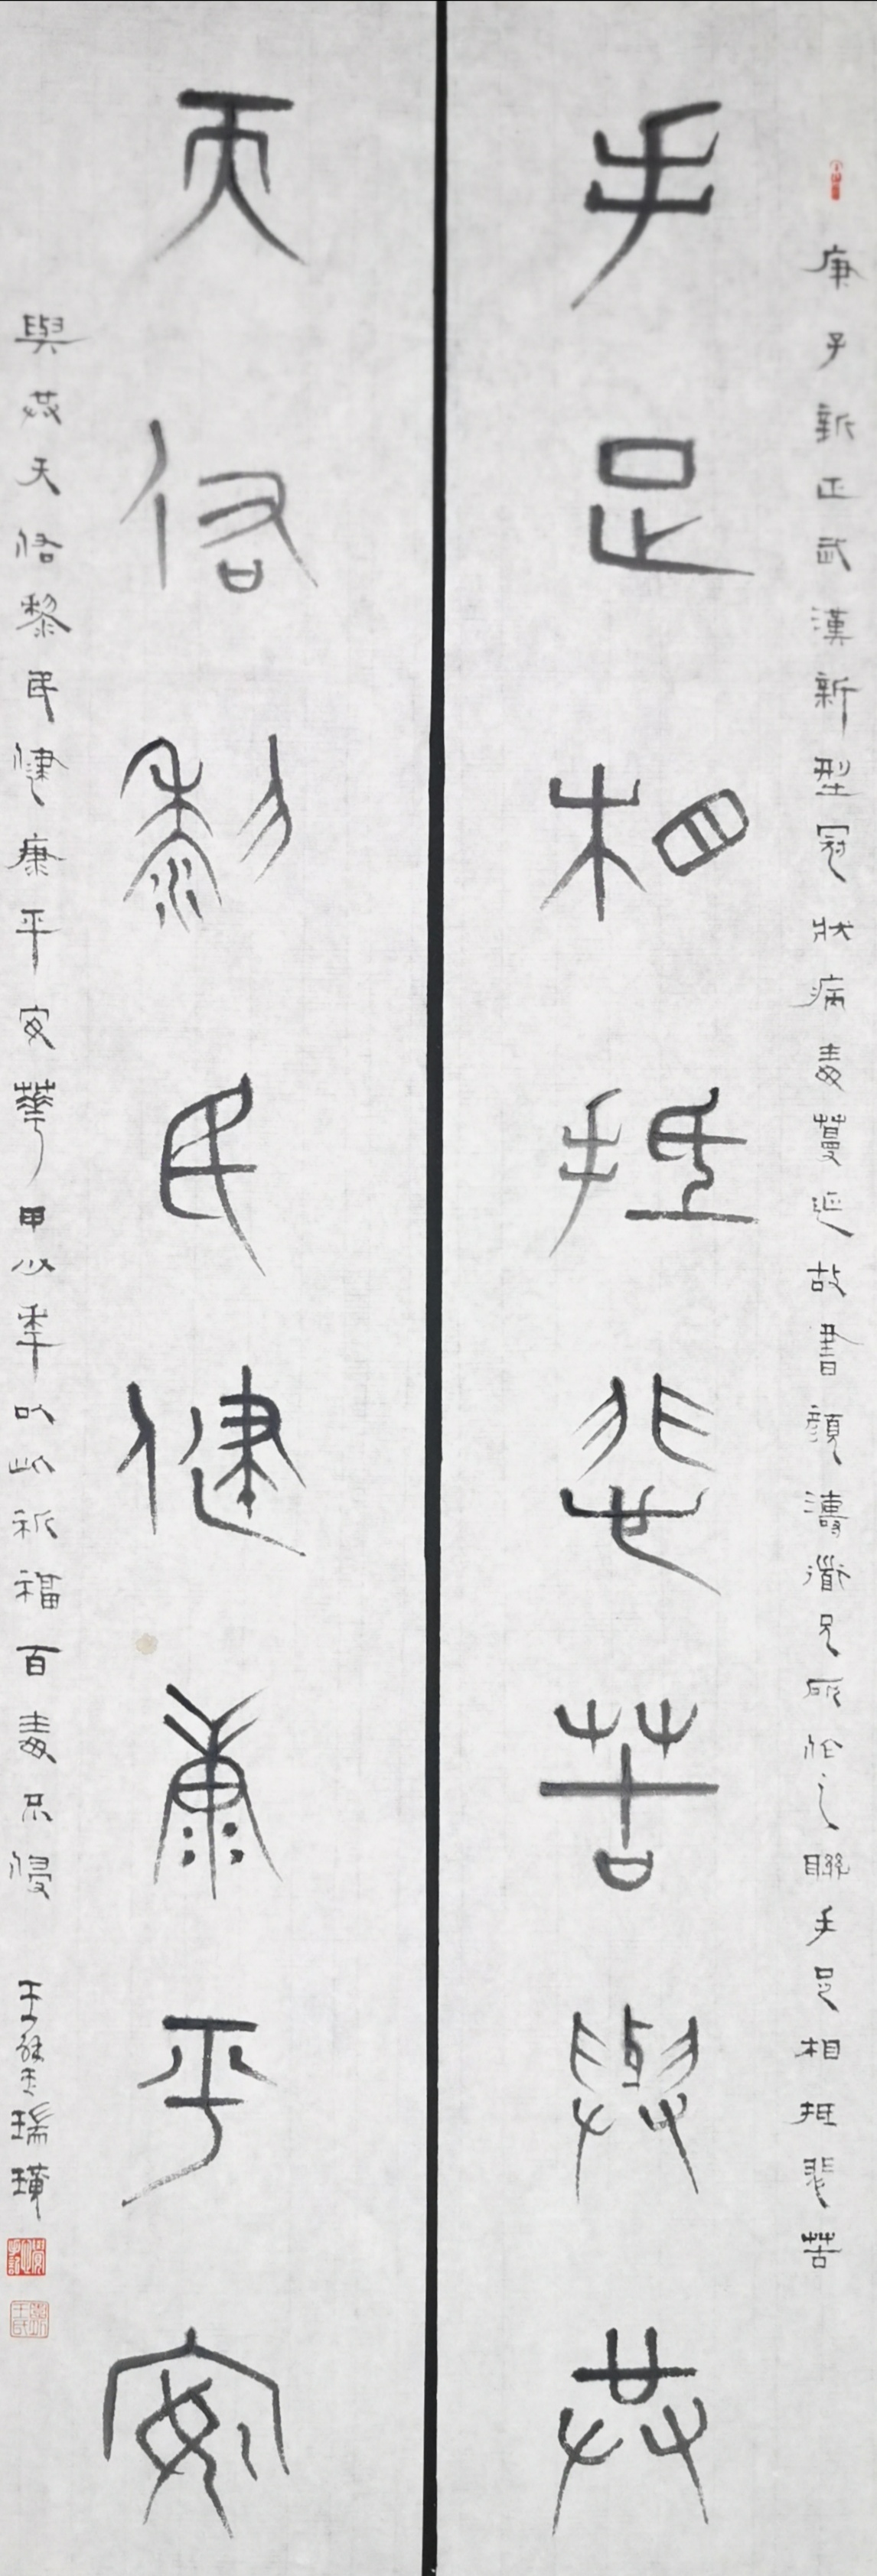 庚子新正武漢新型冠狀病毒蔓延故書顏濤道兄所作之聯手足相抵悲苦
手足相抵悲苦與共
天佑黎民健康平安
與共天佑黎民健康平安華甲少年以此祈福百毒不侵 瑞璜